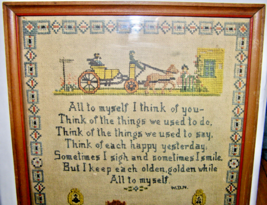 All to myself I think of you-
Think of the things we used to do,
Think of the things we used to say,
Think of each happy yesterday.
Sometimes I sigh and sometimes I smile,
But I keep each olden, golden while
All to myself.
W.D.N.